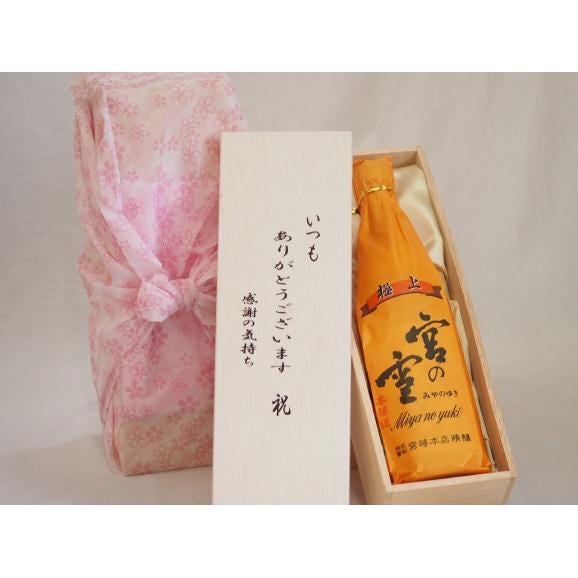 いつも
ありがとうございます 祝
感謝の気持ち
極上
宮の雪
みやのゆき
本醸造
Miya no yuki
株式会社 宮崎本店精醸